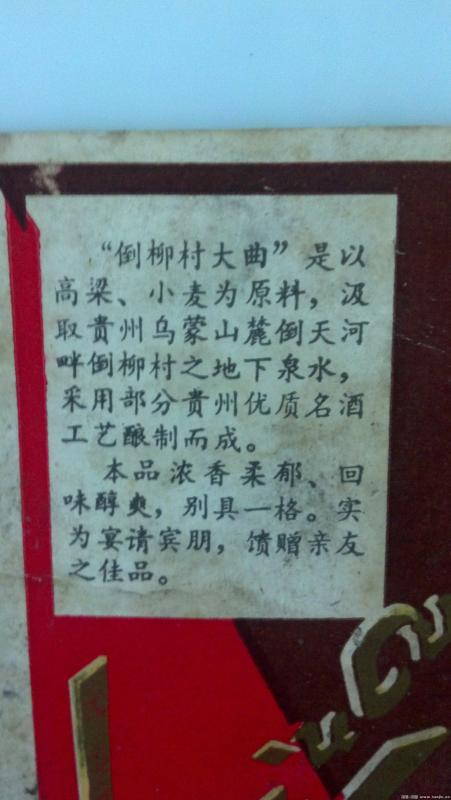 “倒柳村大曲”是以
高梁、小麦为原料，汲
取贵州乌蒙山麓倒天河
畔倒柳村之地下泉水，
采用部分贵州优质名酒
工艺酿制而成。
本品浓香柔郁、回
味醇爽，别具一格。实
为宴请宾朋，馈赠亲友
之佳品。